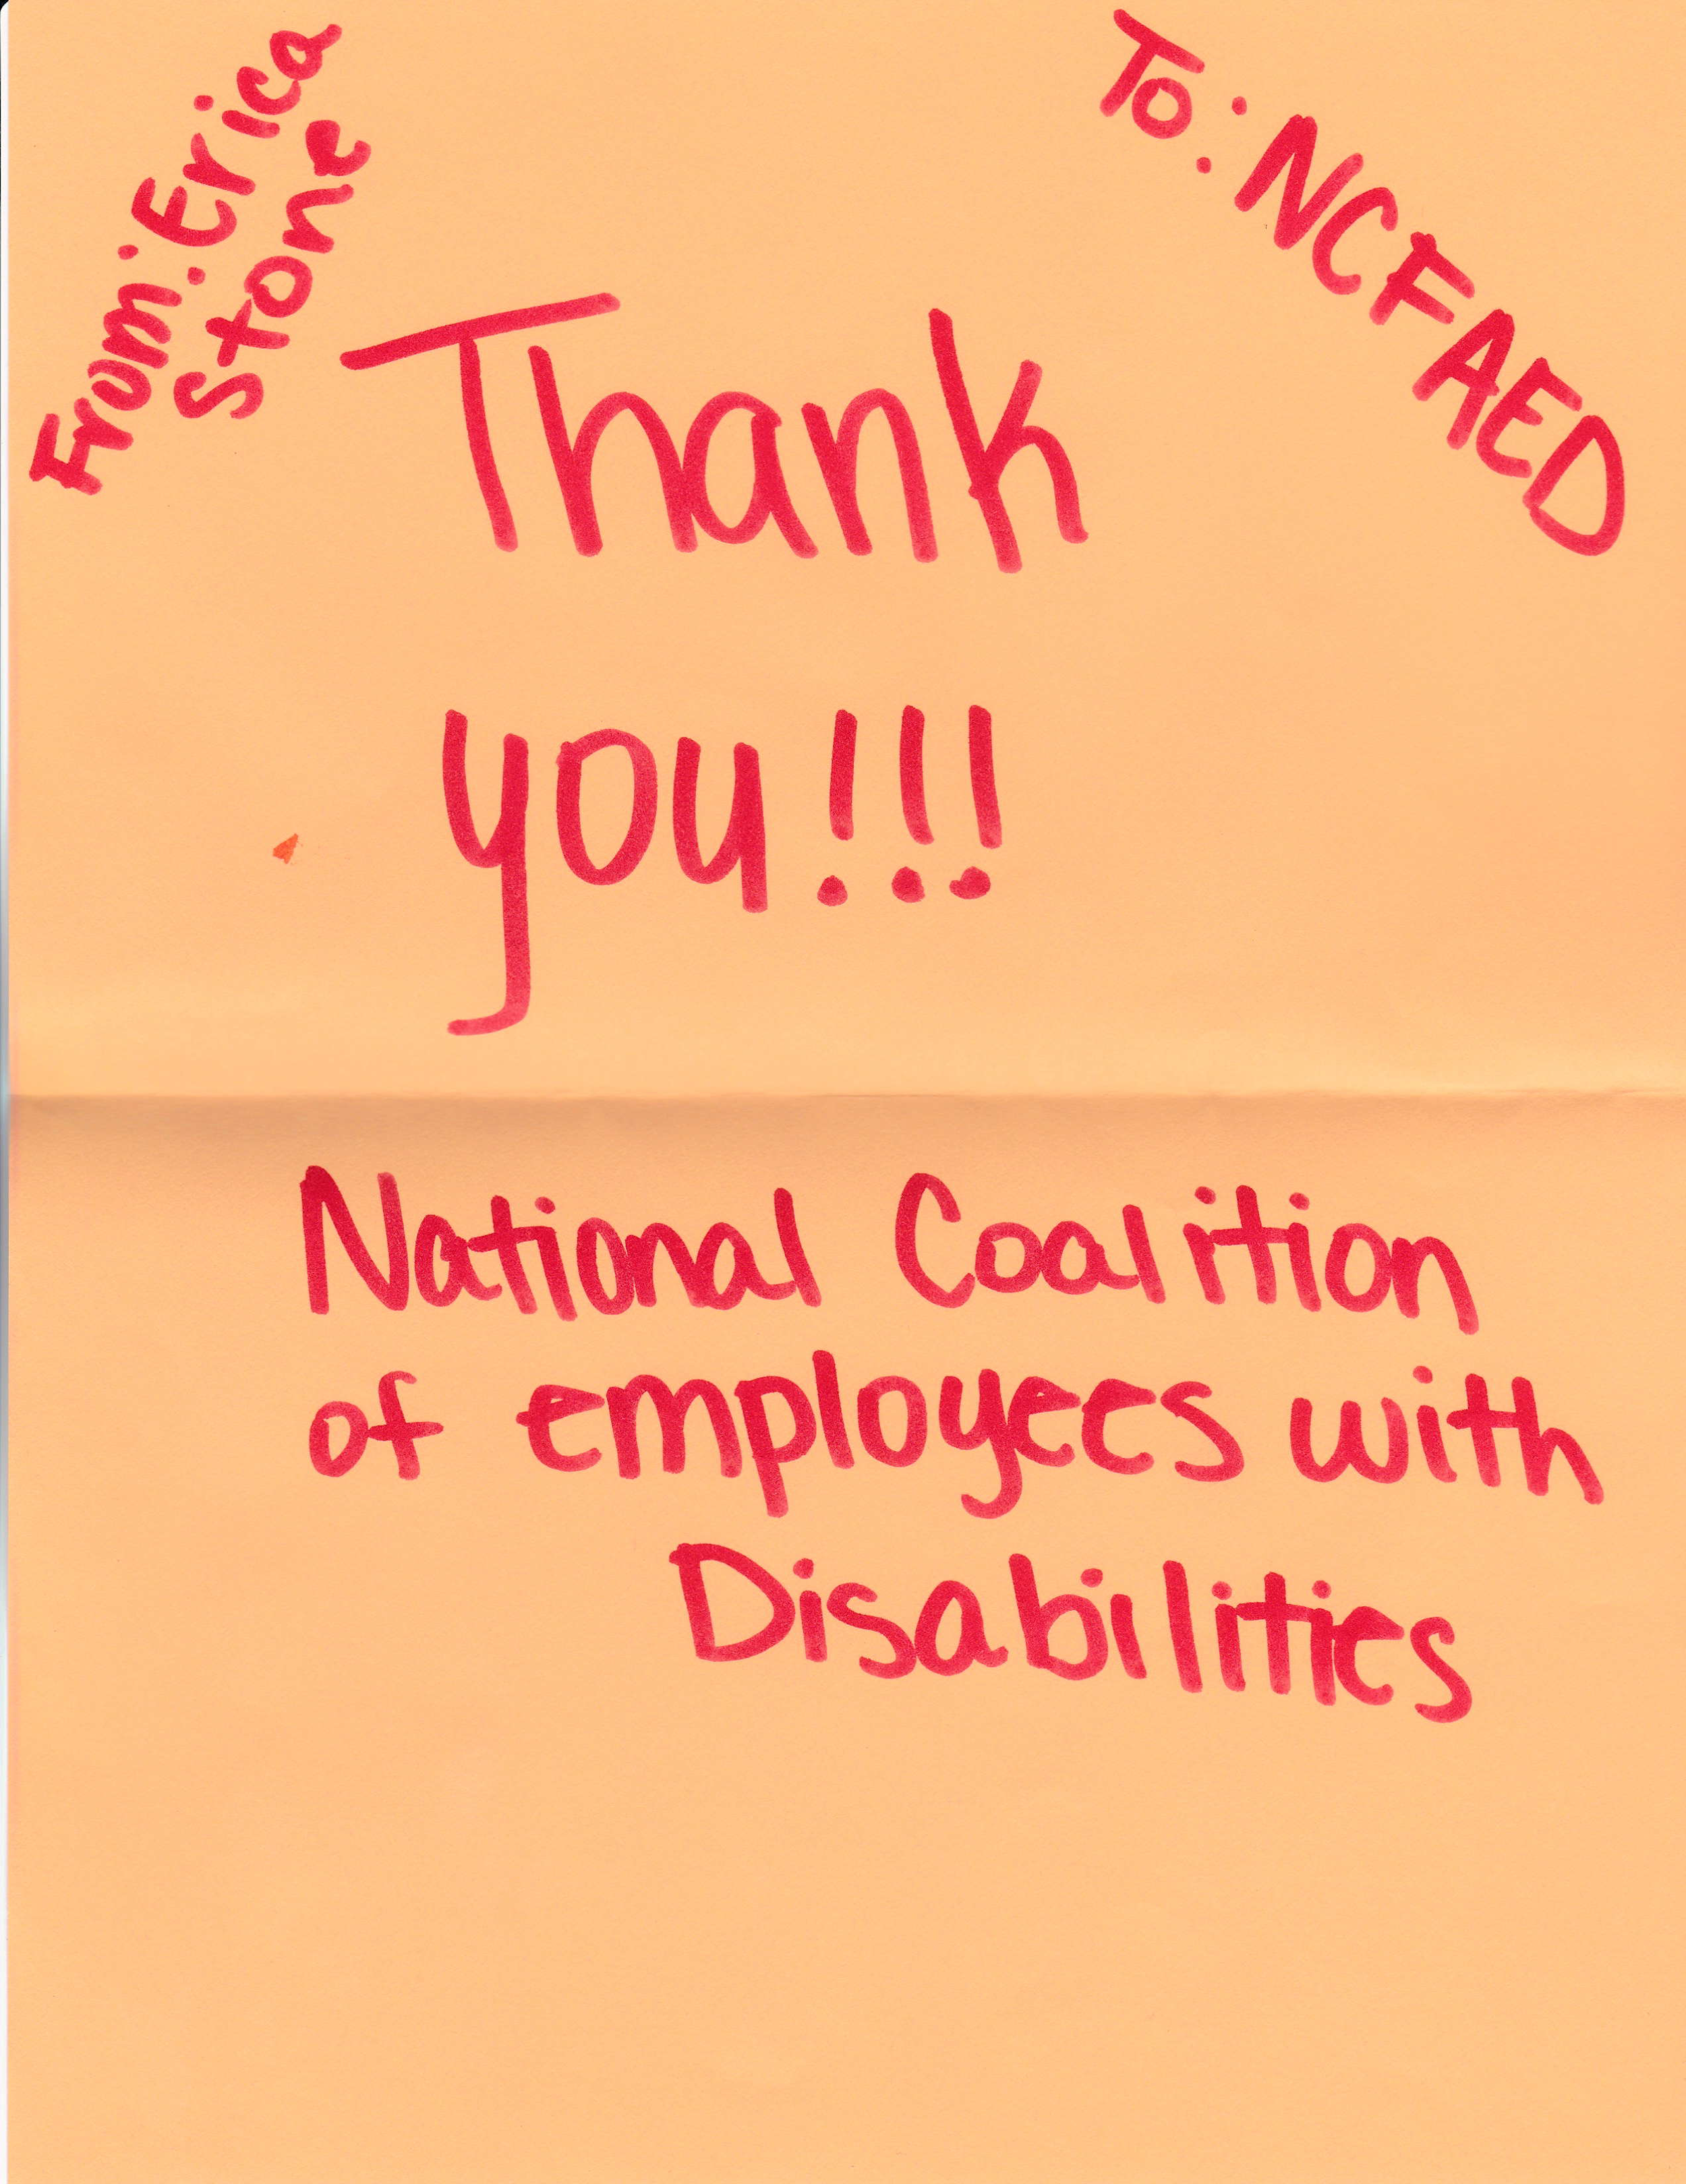 From: Erica
Stone
To: NCFAED
Thank
you!!!
National Coalition
of employees with
Disabilities